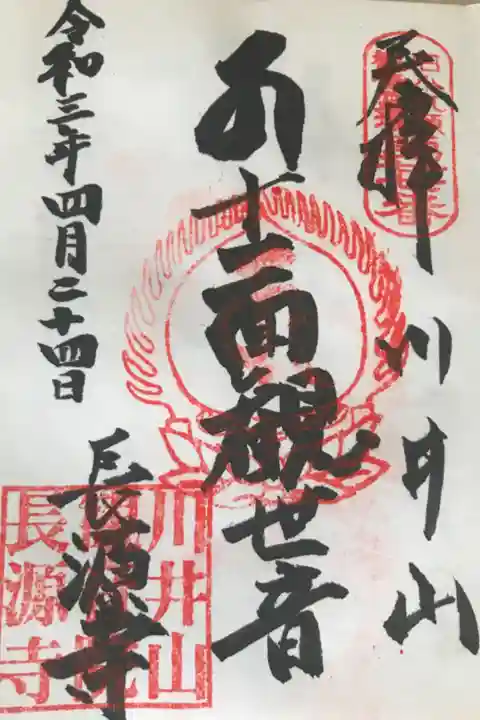 奉拝
川井山
十一面觀世音
長源寺
令和三年四月二十四日
川井山
長源寺